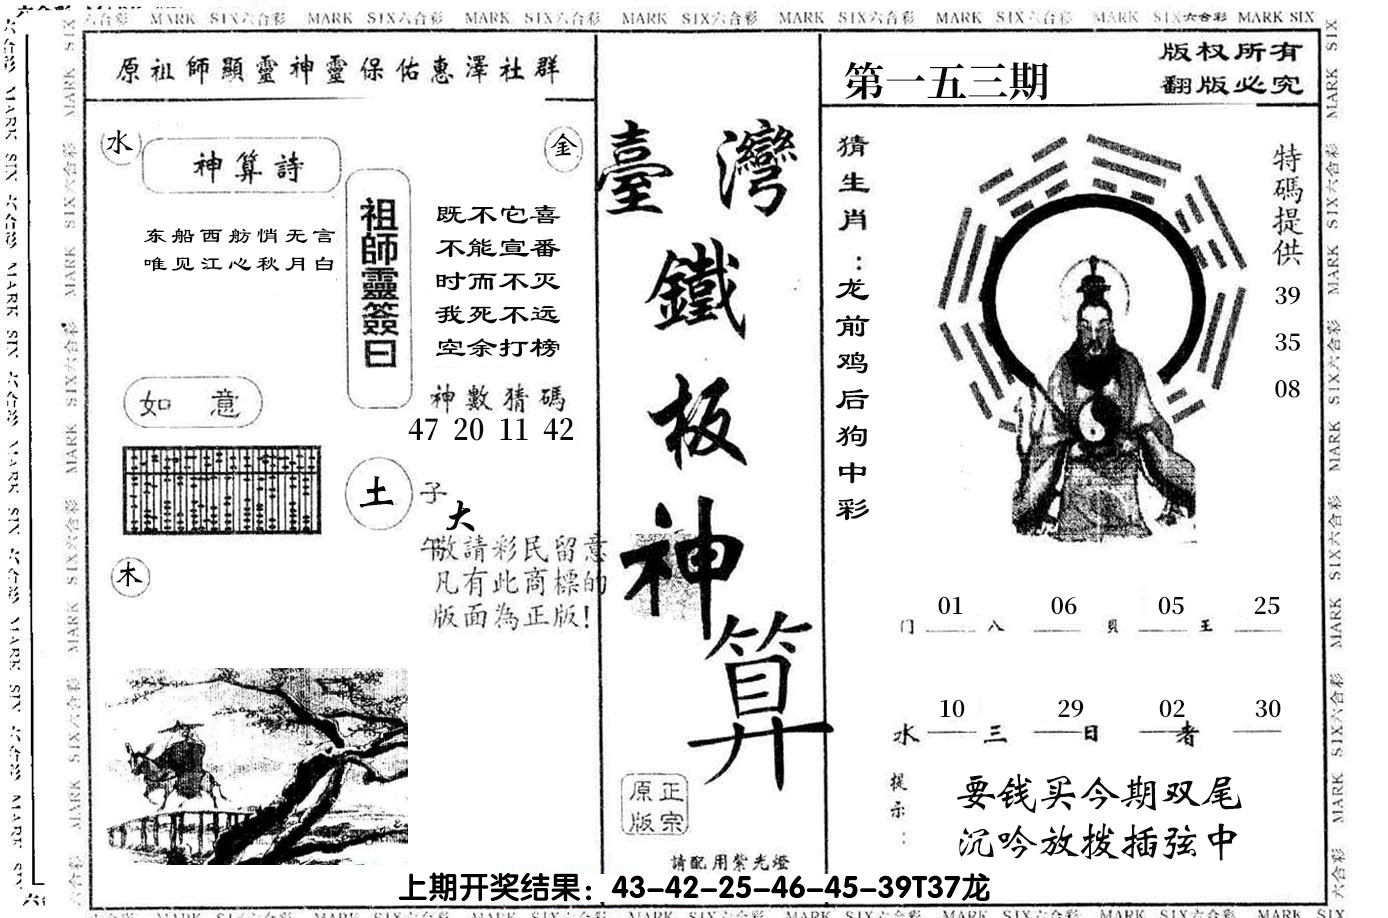 六合彩 MARK SIX六合彩 MARK SIX六合彩 MARK SIX六合彩 MARK SIX六合彩 MARK SIX六合彩 MARK SIX六合彩 MARK SIX六合彩 MARK SIX
原祖師顯靈神靈保佑惠澤社群
水
神算詩
金
东船西舫悄无言
唯见江心秋月白
祖師靈簽曰
既不它喜
不能宣番
时而不灭
我死不远
空余打榜
如意
神數猜碼
47 20 11 42
土
子
大
午
敬請彩民留意
凡有此商標的
版面為正版!
木
臺灣
鐵
板
神
算
原正
版宗
請配用紫光燈
第一五三期
版权所有
翻版必究
猜生肖：龙前鸡后狗中彩
特碼提供
39
35
08
01 06 05 25
门 八 貝 王
10 29 02 30
水 三 日 者
提示：
要钱买今期双尾
沉吟放拨插弦中
上期开奖结果：43-42-25-46-45-39T37龙